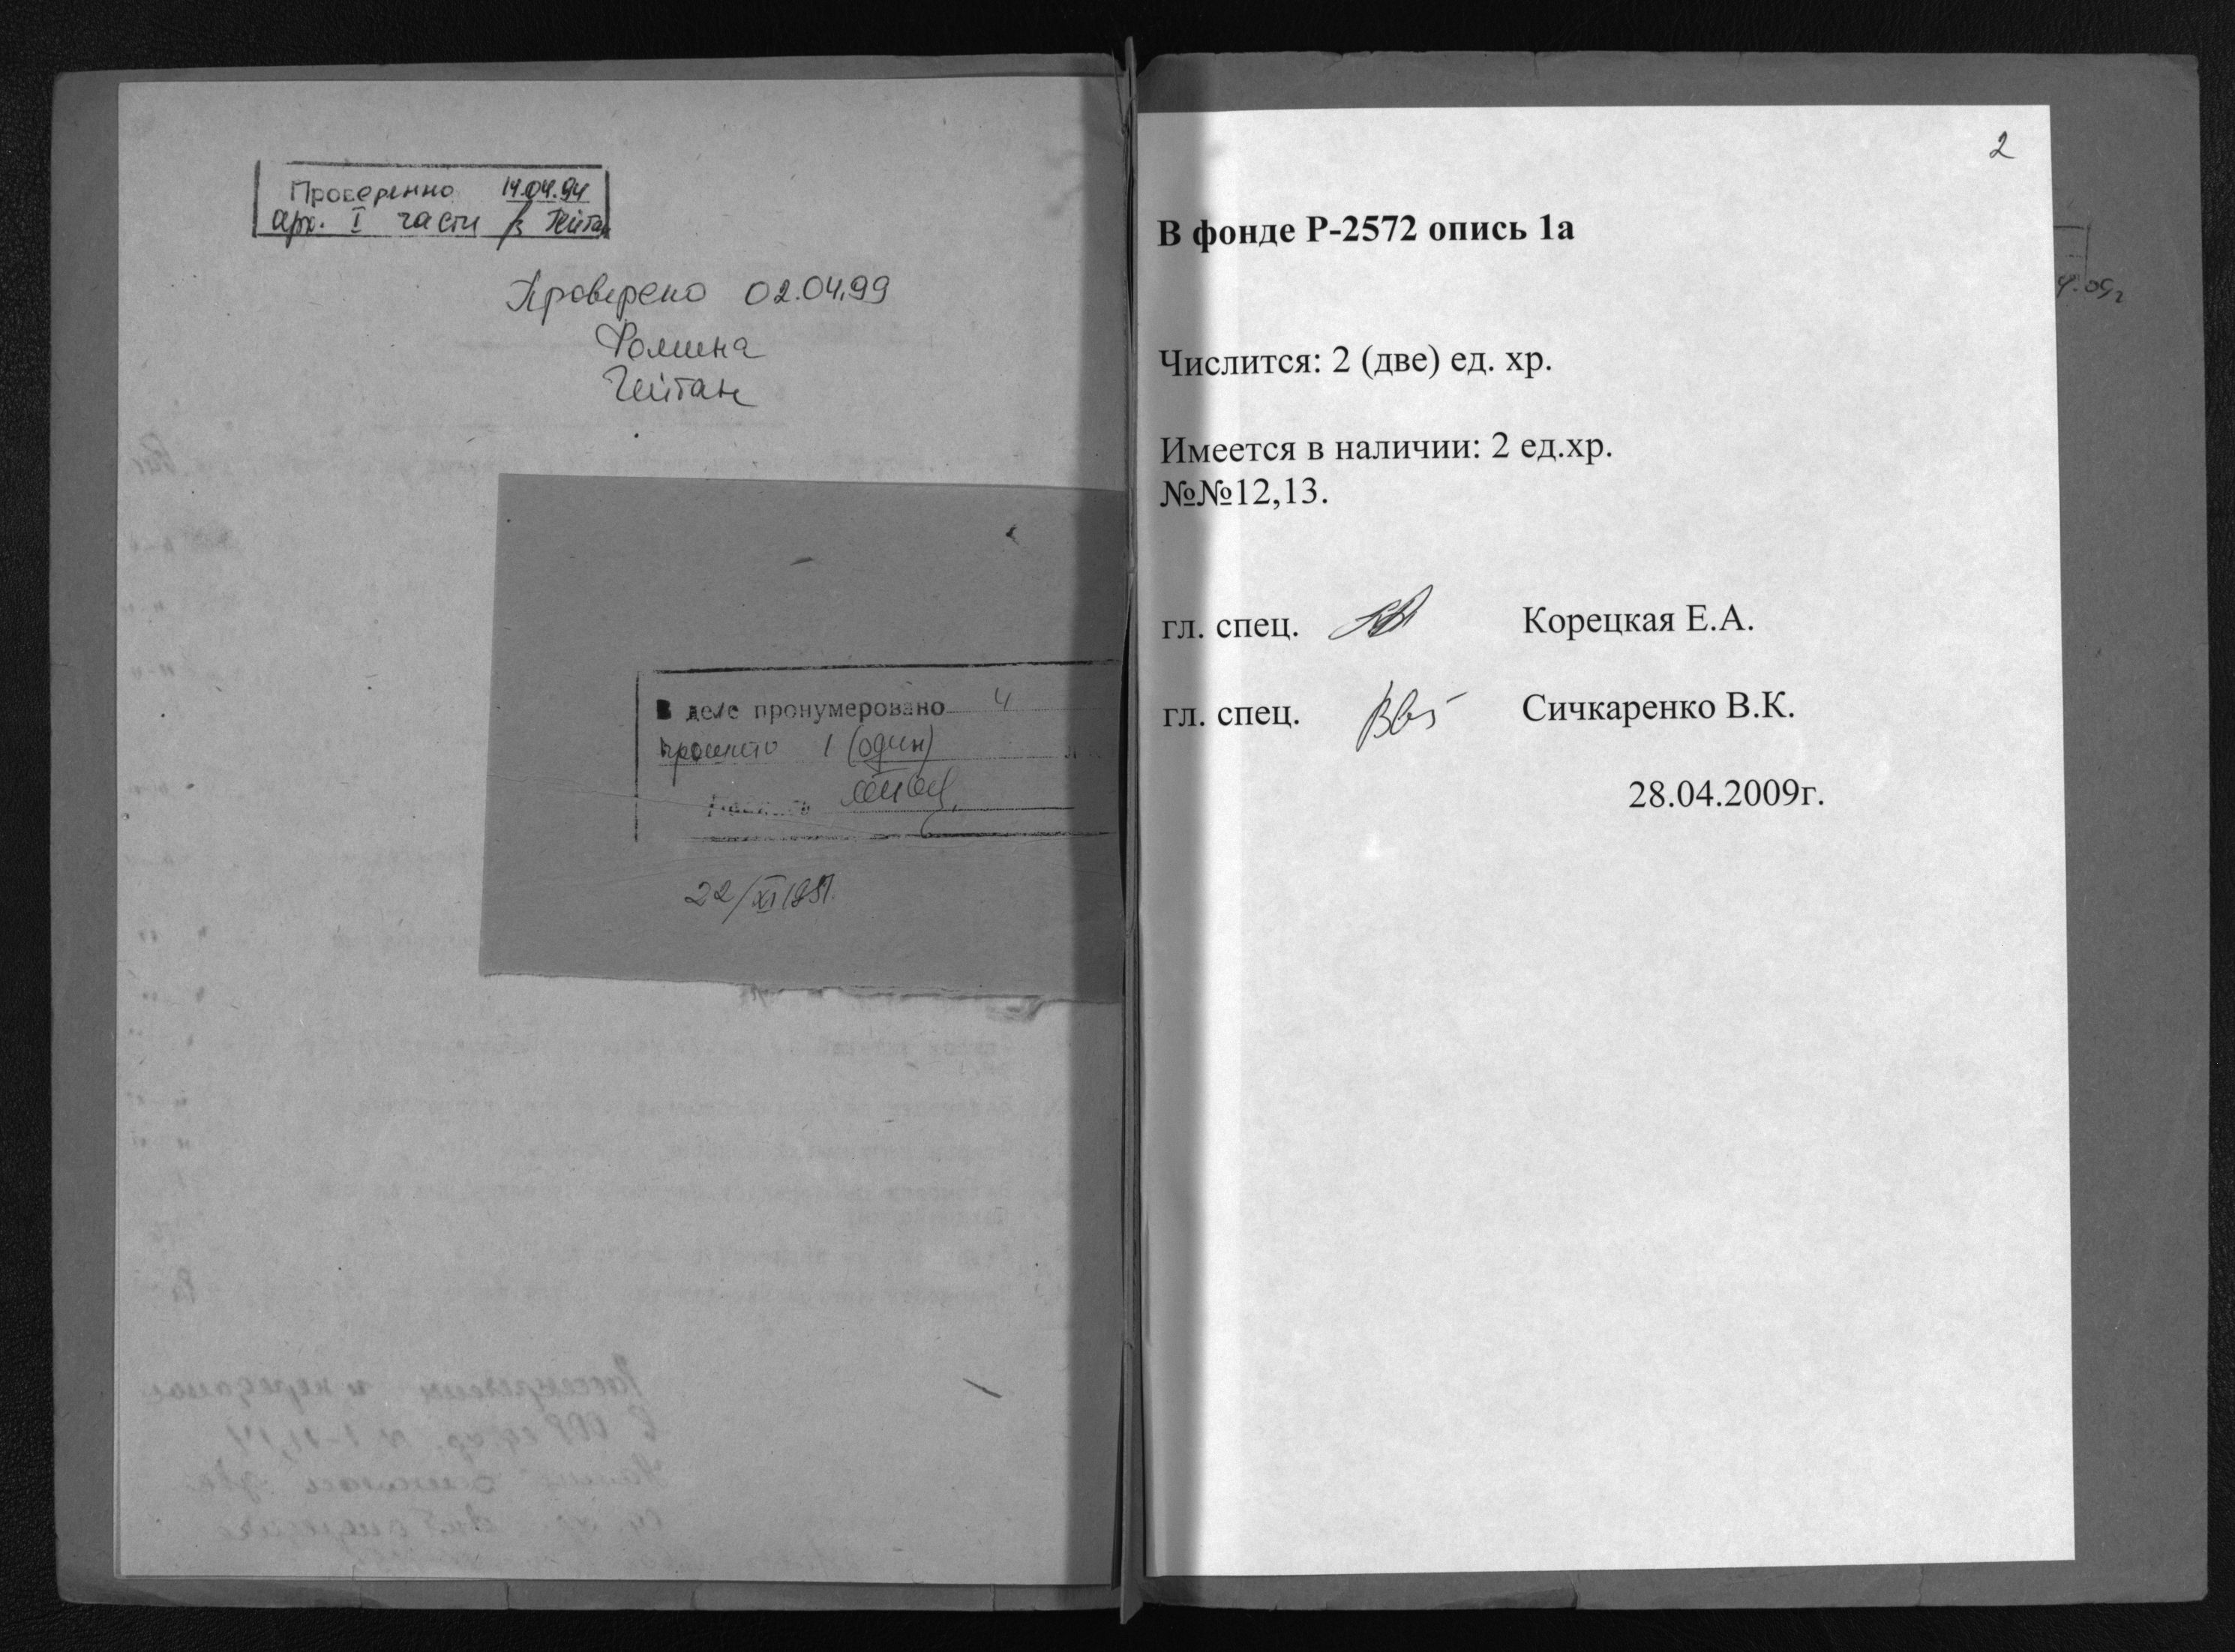 Проверенно 14.04.94
арх. I части
Проверено 02.04.99
Фомина
В деле пронумеровано 4
прошито 1 (один)
22/XI 1951.
2
В фонде Р-2572 опись 1а
Числится: 2 (две) ед. хр.
Имеется в наличии: 2 ед.хр.
№№12,13.
гл. спец. Корецкая Е.А.
гл. спец. Сичкаренко В.К.
28.04.2009г.